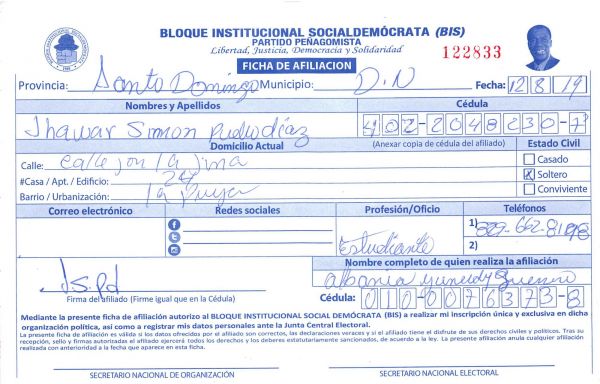 BLOQUE INSTITUCIONAL SOCIALDEMÓCRATA (BIS)
PARTIDO PEÑAGOMISTA
Libertad, Justicia, Democracia y Solidaridad
122833
FICHA DE AFILIACION
Provincia: Santo Domingo Municipio: D.N Fecha: 12 8 19
Nombres y Apellidos Cédula
Jhawar Simon Díaz 402-2048230-7
Domicilio Actual (Anexar copia de cédula del afiliado) Estado Civil
Calle: Callejon la
#Casa / Apt. / Edificio: Casado
Barrio / Urbanización: la X Soltero
Conviviente
Correo electrónico Redes sociales Profesión/Oficio Teléfonos
Estudiante 1) 829-662-
2)
J.S.P.d
Nombre completo de quien realiza la afiliación
Albania
Firma del afiliado (Firme igual que en la Cédula) Cédula: 010-0076373-8
Mediante la presente ficha de afiliación autorizo al BLOQUE INSTITUCIONAL SOCIAL DEMÓCRATA (BIS) a realizar mi inscripción única y exclusiva en dicha
organización política, así como a registrar mis datos personales ante la Junta Central Electoral.
La presente ficha de afiliación es válida si los datos ofrecidos por el afiliado son correctos, las declaraciones veraces y si el afiliado tiene el disfrute de sus derechos civiles y políticos. Tras su
recepción, sello y firmas autorizadas el afiliado ejercerá todos los derechos y los deberes estatutariamente sancionados, de acuerdo a la ley. La presente afiliación anula cualquier afiliación
realizada con anterioridad a la fecha que aparece en esta ficha.
SECRETARIO NACIONAL DE ORGANIZACIÓN SECRETARIO NACIONAL ELECTORAL